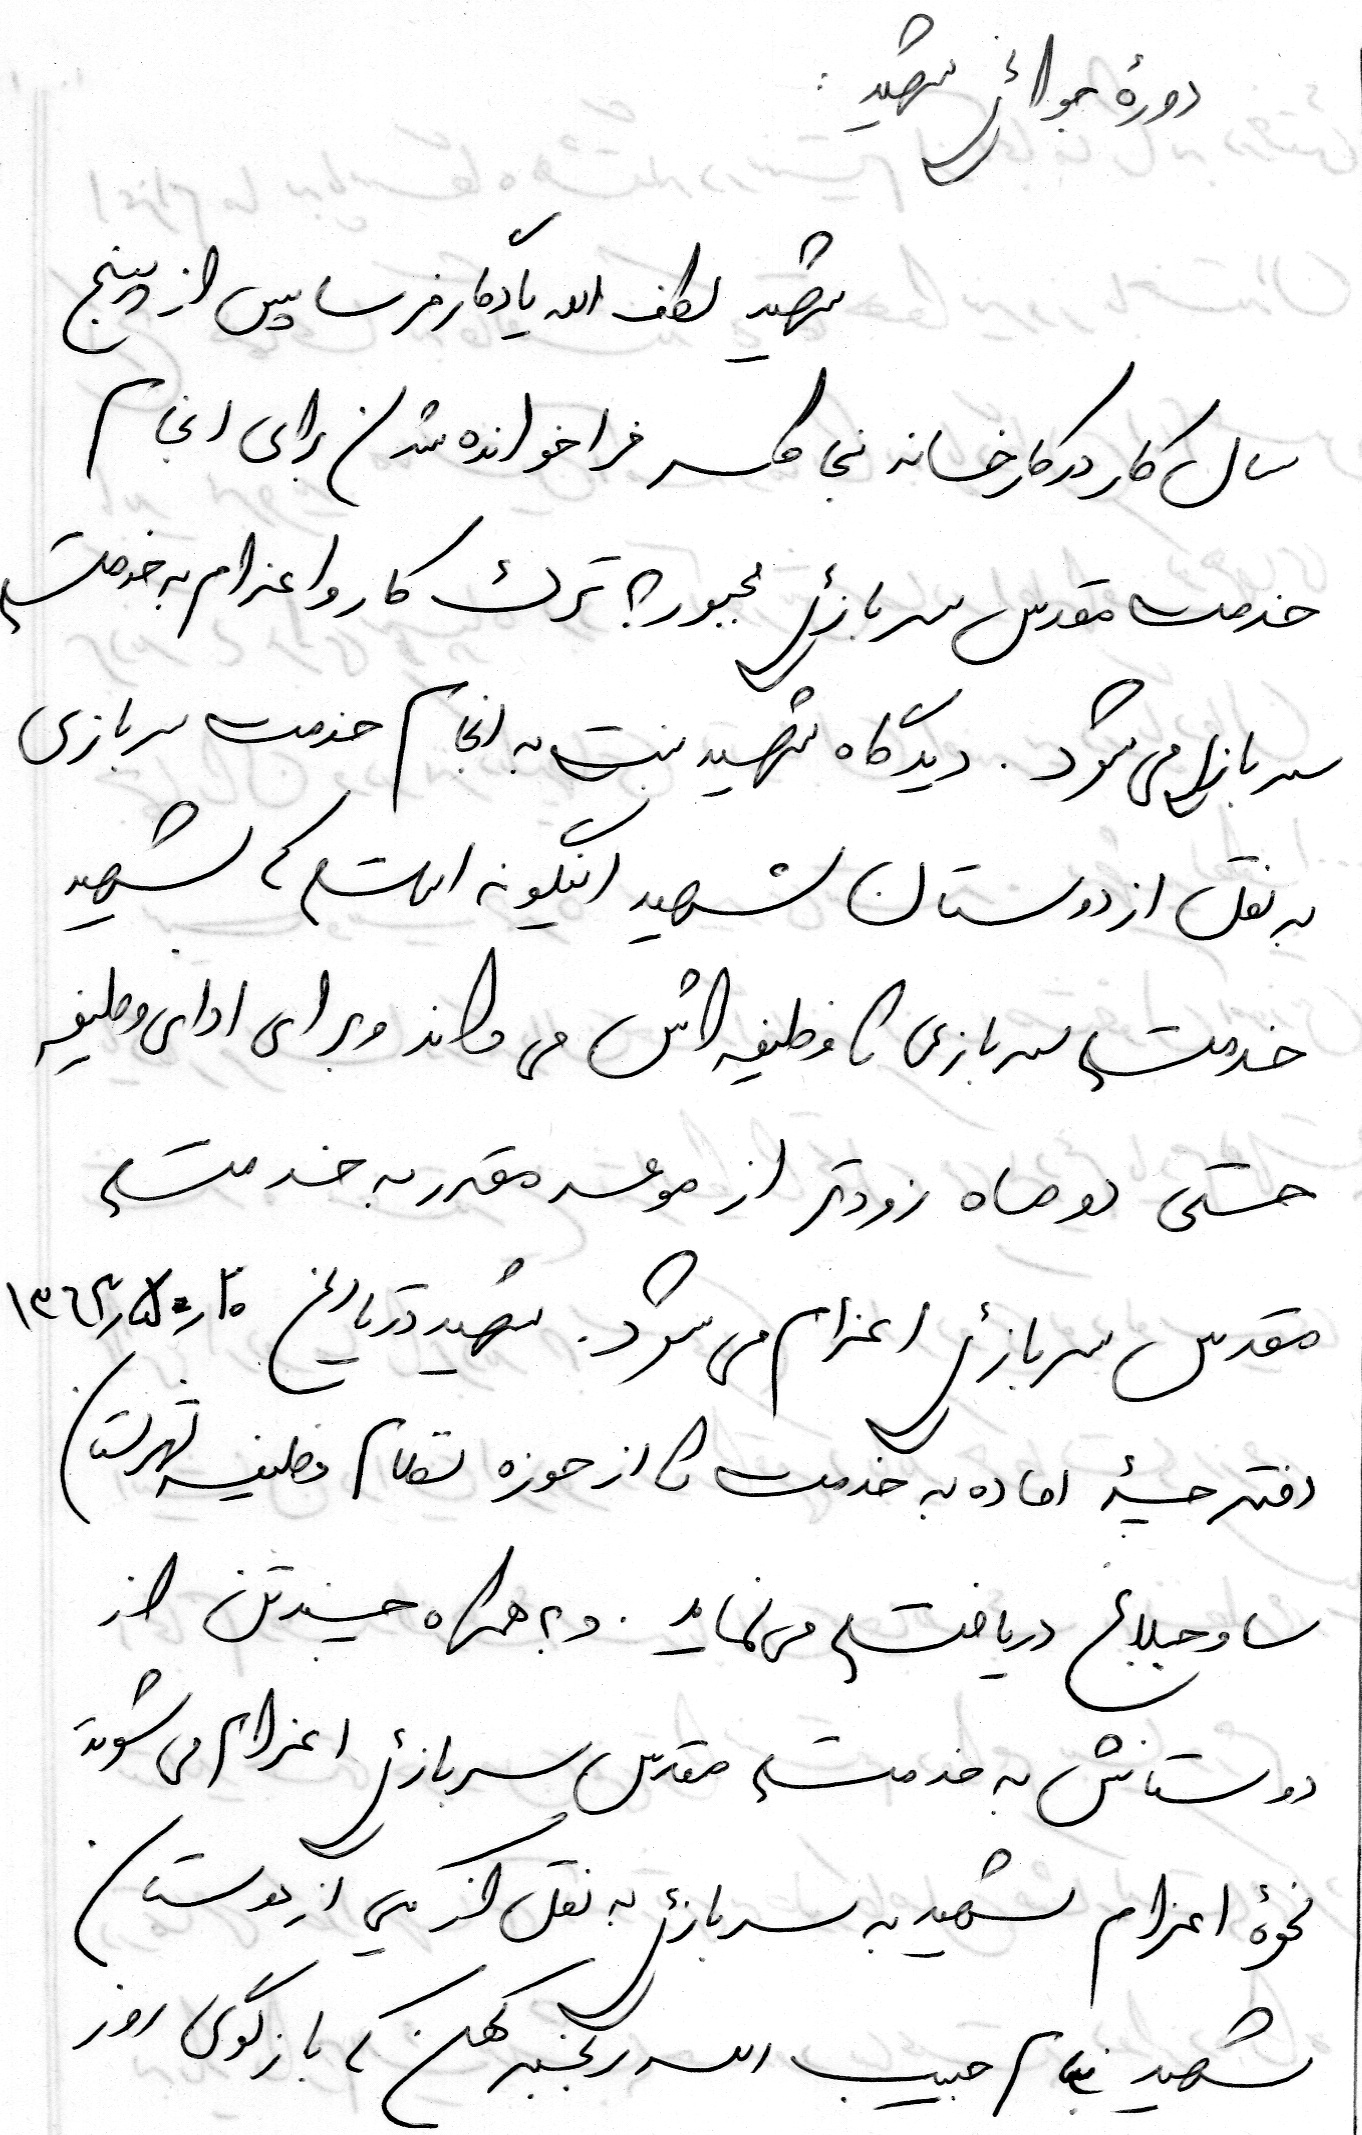 دورهٔ جوانی شهید :
شهید لطف الله یادگار فرسا پس از پنج
سال کار در کارخانه با فراخوانده شدن برای انجام
خدمت مقدس سربازی مجبور به ترک کار و اعزام به خدمت
سربازی می شود . دیدگاه شهید نسبت به انجام خدمت سربازی
به نقل از دوستان شهید اینگونه است که شهید
خدمت سربازی را وظیفه اش می داند و برای ادای وظیفه
حتی دو ماه زودتر از موعد مقرر به خدمت
مقدس سربازی اعزام می شود . شهید در تاریخ
دفترچهٔ اماده به خدمت را از حوزه نظام وظیفه شهرستان
ساوجبلاغ دریافت می نماید . و به همراه چند تن از
دوستانش به خدمت مقدس سربازی اعزام می شوند
نحوهٔ اعزام شهید به سربازی به نقل از یکی از دوستان
شهید بنام حبیب الله رنجبر کهن که بازگوی روز